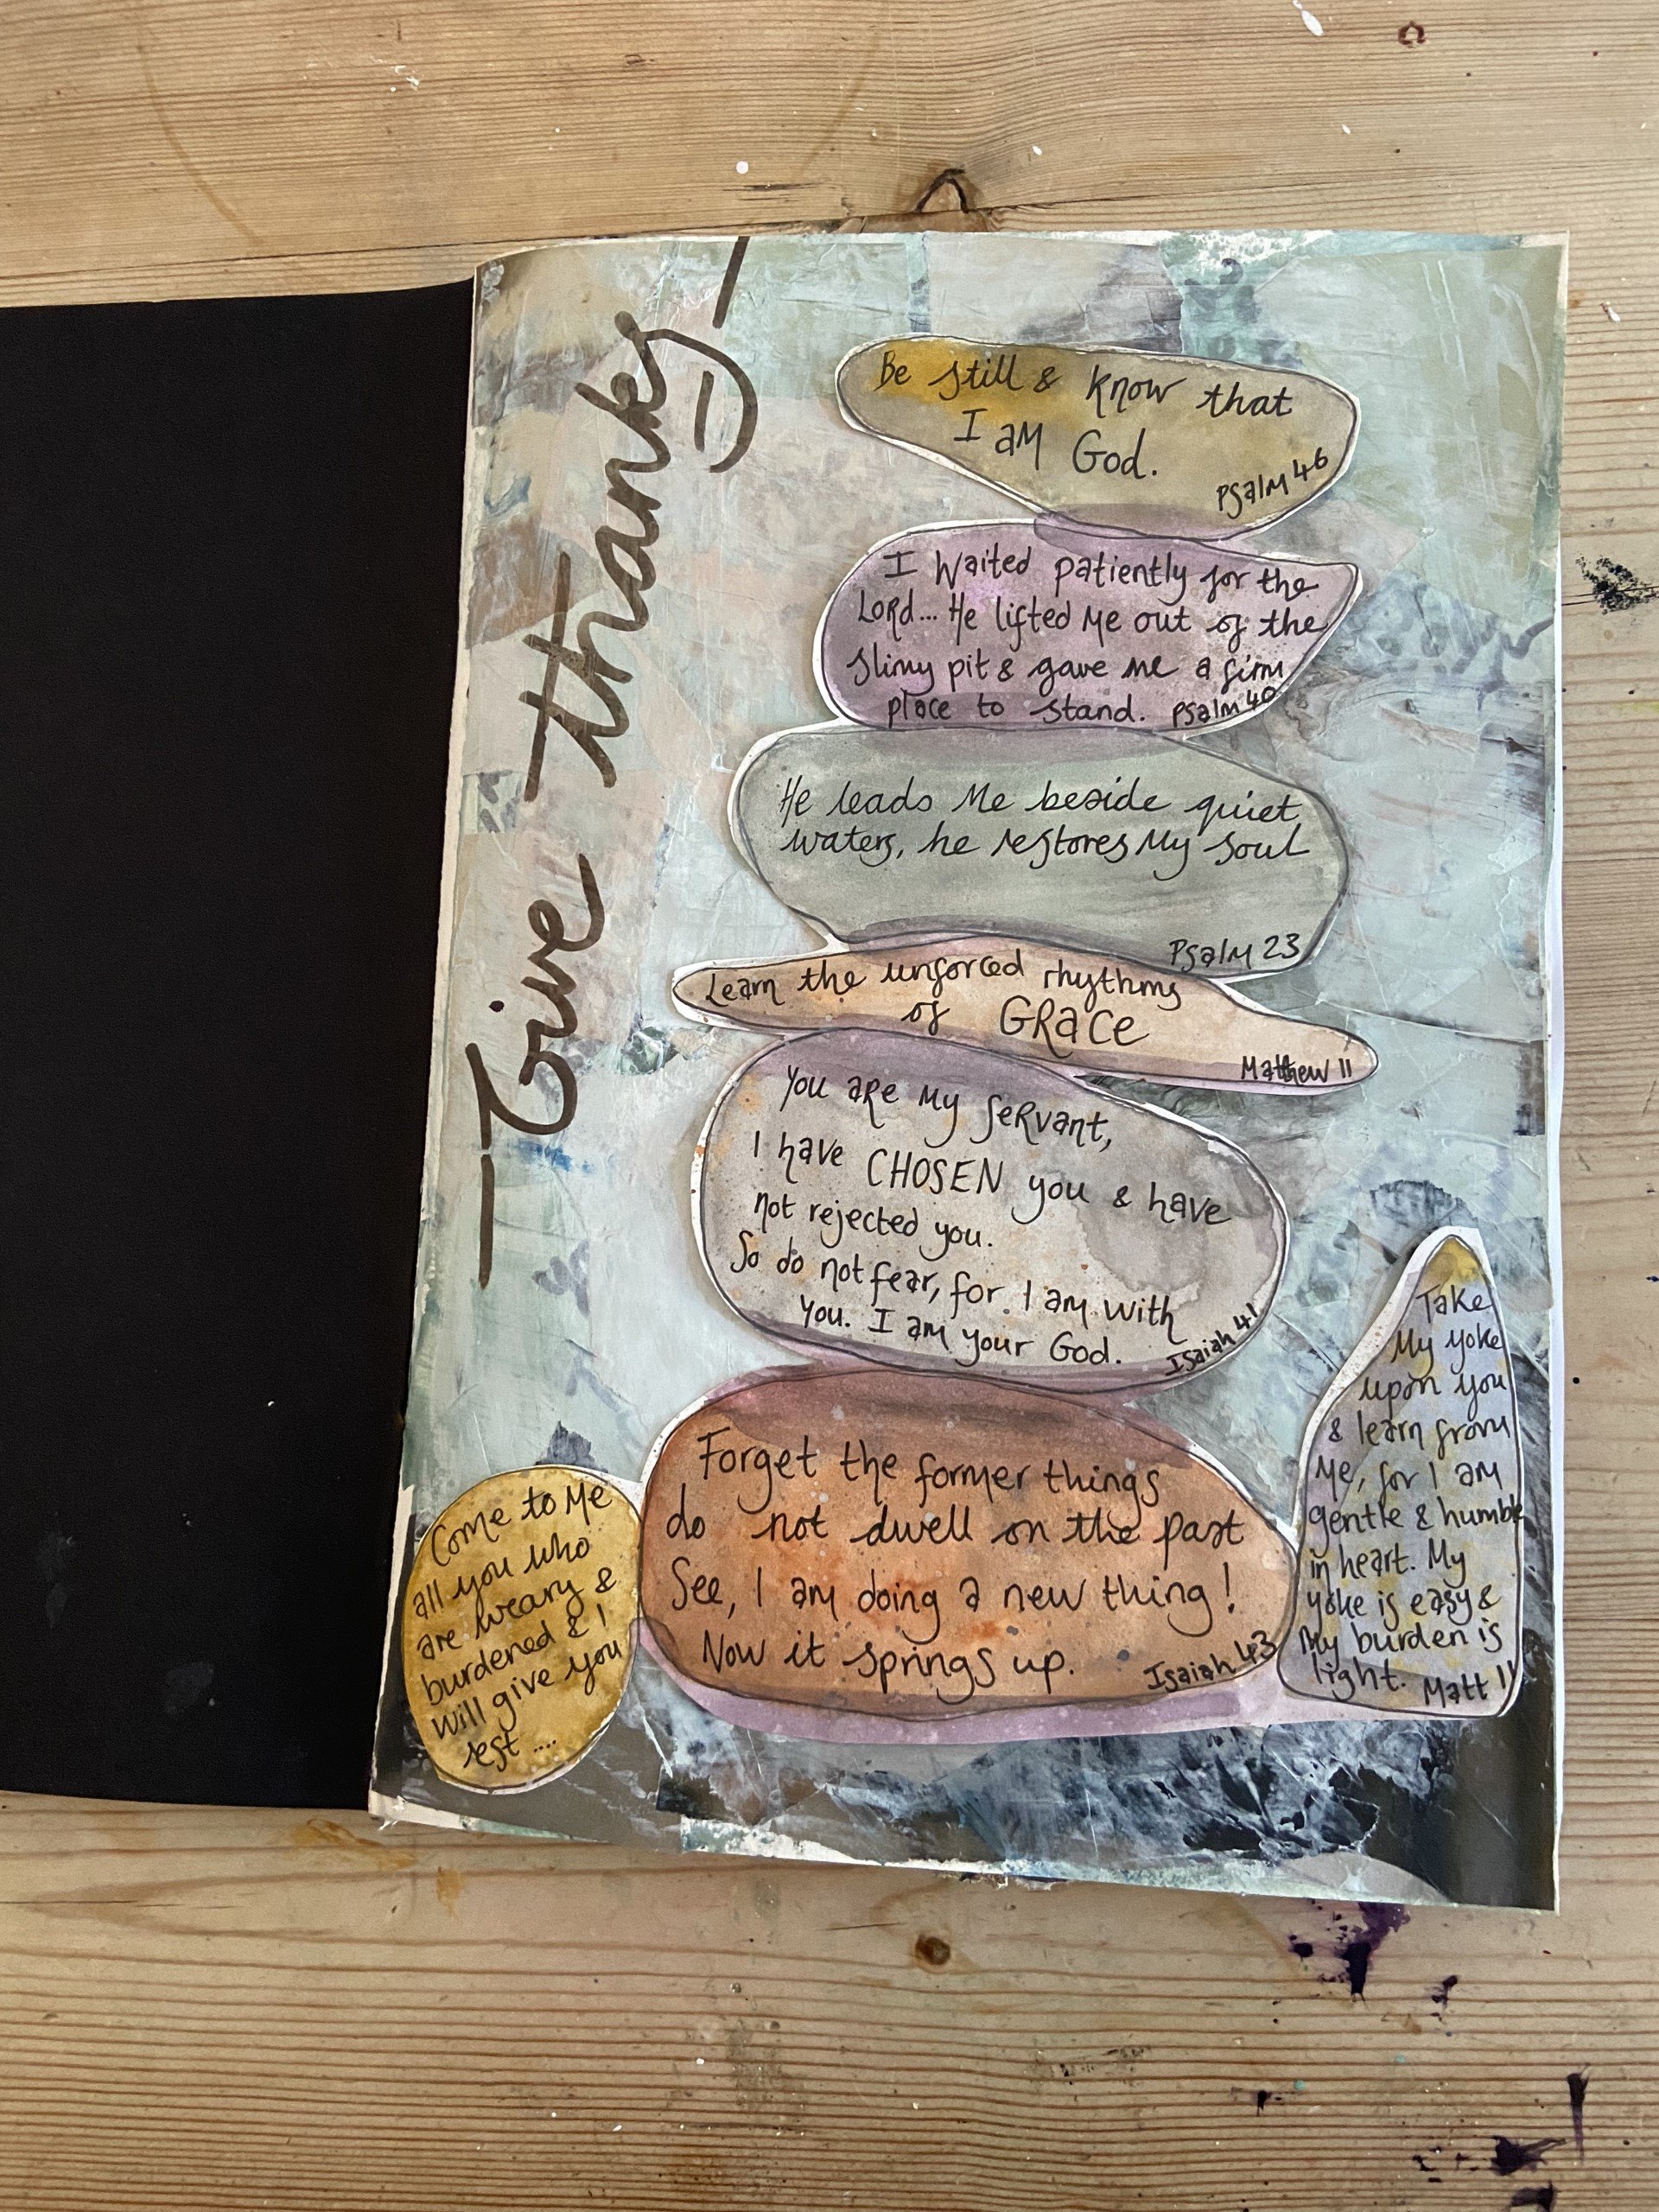 Give thanks
Be still & know that
I am God.
Psalm 46
I waited patiently for the
Lord... He lifted me out of the
slimy pit & gave me a firm
place to stand. Psalm 40
He leads me beside quiet
waters, he restores my soul
Psalm 23
Learn the unforced rhythms
of GRACE
Matthew 11
You are my servant,
I have CHOSEN you & have
not rejected you.
So do not fear, for I am with
you. I am your God.
Isaiah 41
Forget the former things
do not dwell on the past
See, I am doing a new thing!
Now it springs up.
Isaiah 43
Come to me
all you who
are weary &
burdened & I
will give you
rest ....
Take
My yoke
upon you
& learn from
me, for I am
gentle & humble
in heart. My
yoke is easy &
My burden is
light. Matt 11